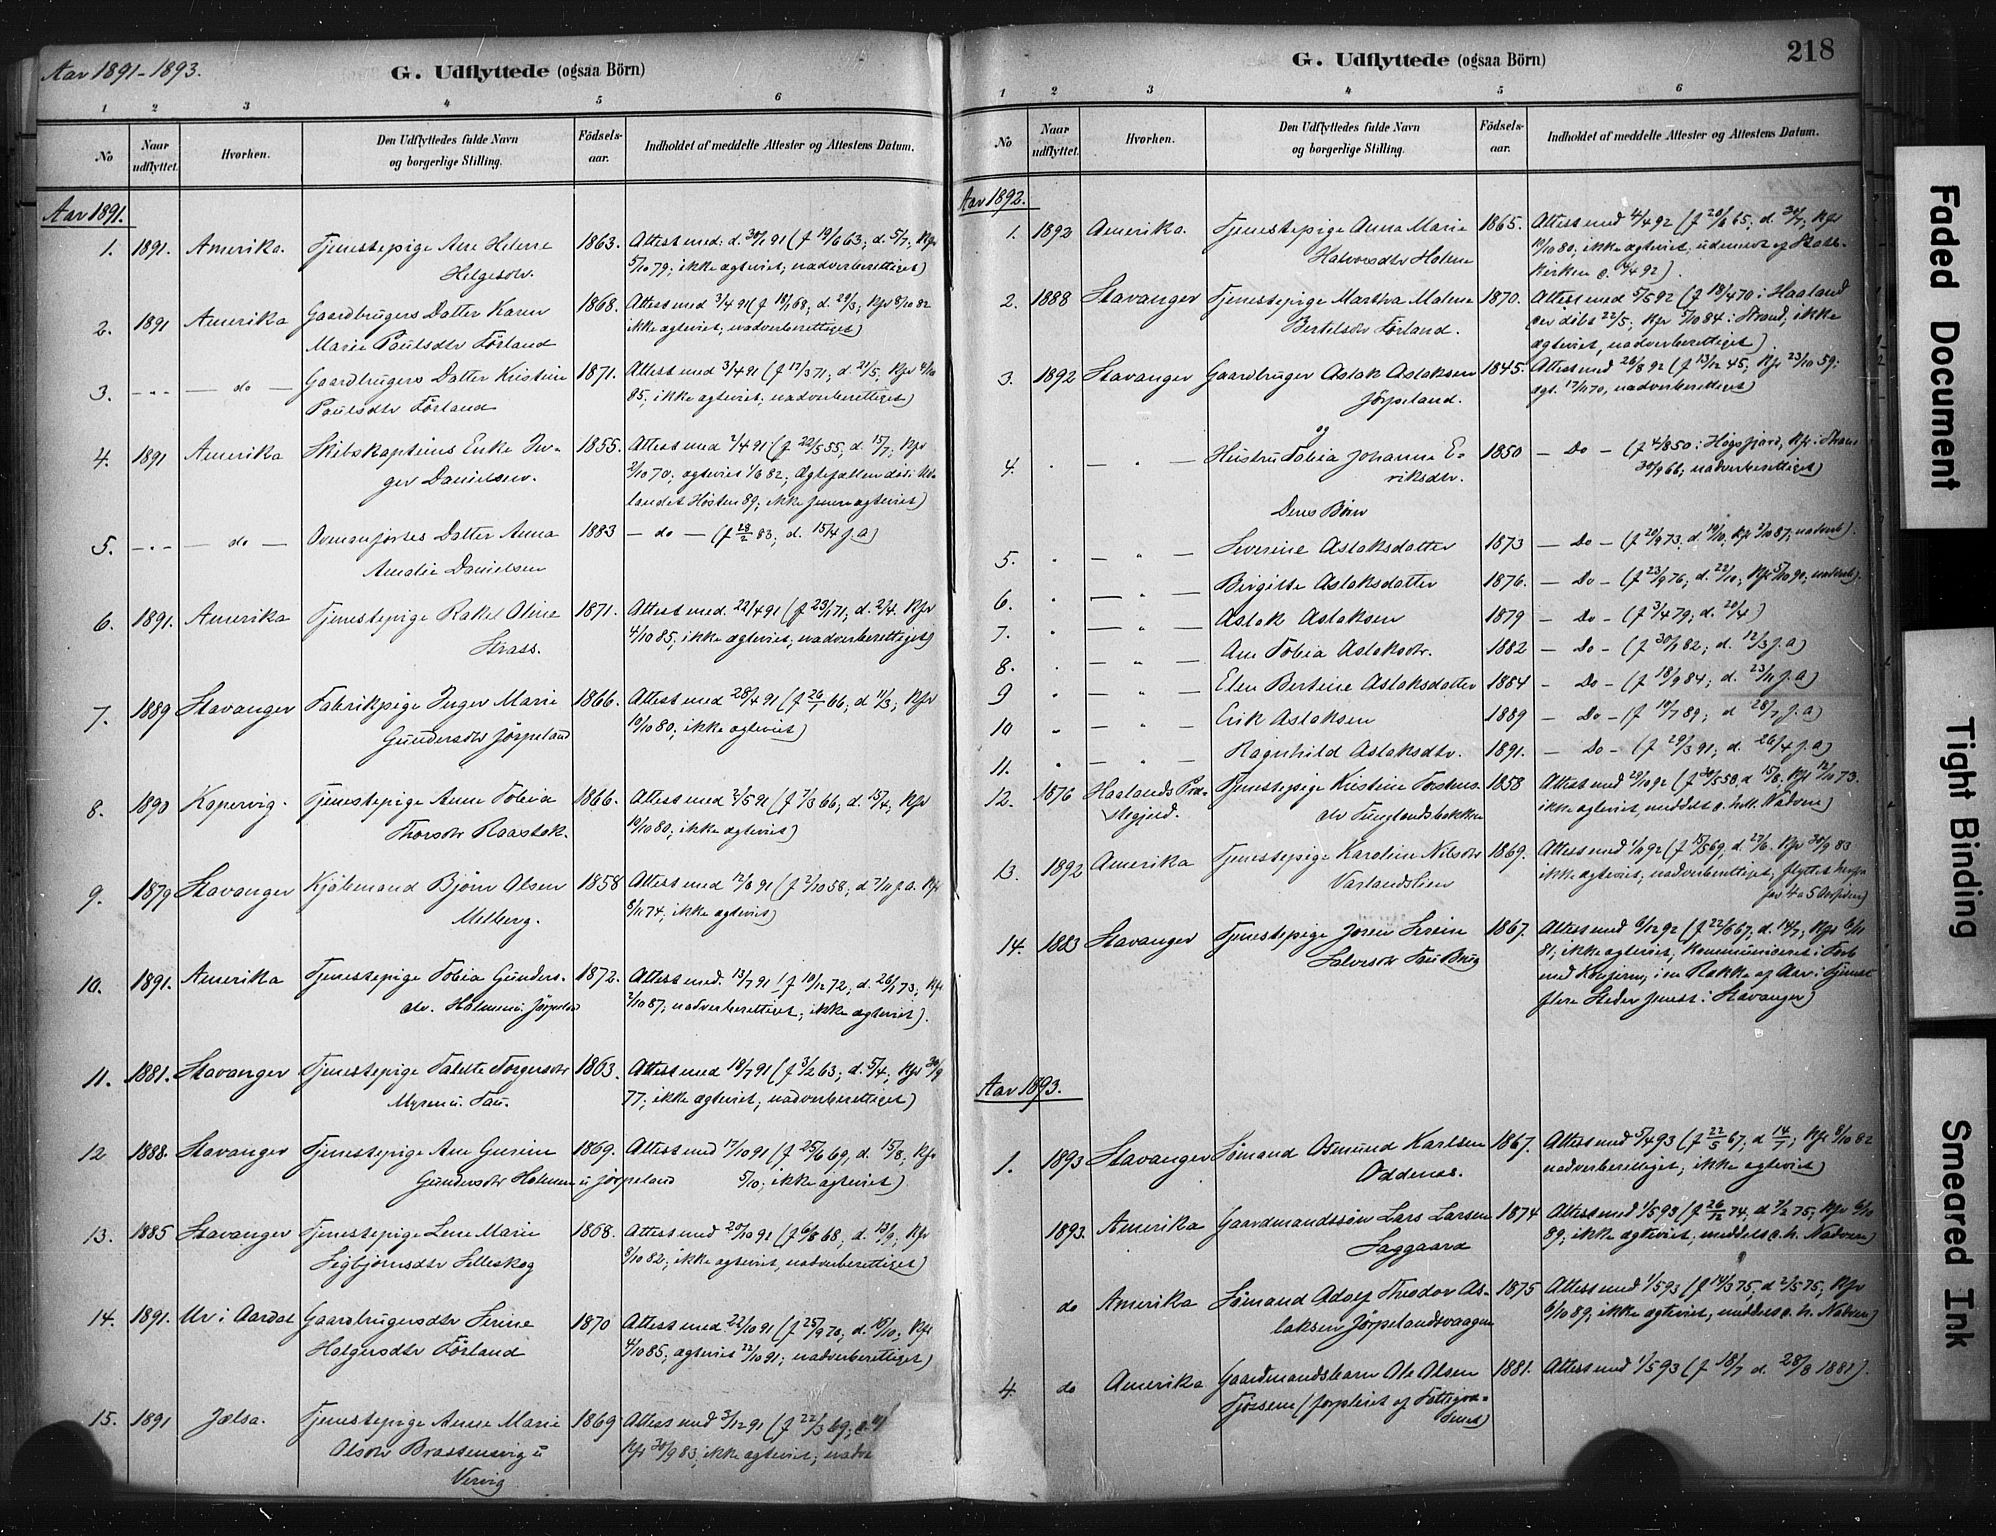 Aar 1891-1893.
G. Udflyttede (ogsaa Börn)
1 2 3 4 5 6
No
Naar udflyttet.
Hvorhen.
Den Udflyttedes fulde Navn og borgerlige Stilling.
Födsels-aar.
Indholdet af meddelte Attester og Attestens Datum.
Aar 1891.
1. 1891. Amerika. Tjenestepige Ane Helene 1863. Attest med: d. 30/1 91 (f 19/6 63; d. 5/7; Kfr
Helgesdtr. 5/10 79; ikke ægteviet; nadverberettiget)
2. 1891 Amerika Gaardbrugers Datter Karen 1868. Attest med 3/4 91 (f 18/1 68; d. 29/3; Kfr 8/10 82
Marie Paulsdtr Förland ikke ægteviet; nadverberettiget)
3. -"- — do — Gaardbrugers Datter Kristine 1871. Attest med 3/4 91 (f 17/3 71; d. 21/5; Kfr 4/10
Paulsdtr Förland 85; ikke ægteviet, nadverberettiget)
4. 1891 Amerika Skibskapteins Enke In- 1855. Attest med 2/4 91 (f 22/5 55; d. 15/7; Kfr
ger Danielsen. 2/10 70; ægteviet 1/8 82; Ægtefællen död i Ud-
landet Høsten 89; ikke senere ægteviet)
5. -"- — do — Ovenanførtes Datter Anna 1883 — do — (f 28/2 83; d. 15/4 s. a)
Amalie Danielsen
6. 1891. Amerika Tjenestepige Rakel Oline 1871. Attest med. 22/4 91 (f 23/1 71; d. 2/4. Kfr
Strass. 4/10 85; ikke ægteviet; nadverberettiget)
7. 1889 Stavanger Fabrikpige Inger Marie 1866. Attest med 28/4 91 (f 26/1 66; d 11/3; Kfr
Gundersdtr Jörpeland 10/10 80; ikke ægteviet)
8. 1890 Kopervig. Tjenestepige Anne Tobia 1866. Attest med 2/5 91 (f 7/3 66; d. 15/4; Kfr
Thorsdtr Raastøk. 10/10 80; ikke ægteviet)
9. 1879 Stavanger Kjöbmand Björn Olsen 1858 Attest med 12/6 91 (f 2/10 58; d 7/11 s. a. Kfr
Melberg. 8/11 74; ikke ægteviet)
10. 1891. Amerika Tjenestepige Tobia Gunders- 1872. Attest med. 13/7 91 (f 19/12 72; d. 26/1 73; Kfr
dtr. Holmen u. Jörpeland 2/10 87; nadverberettiget; ikke ægteviet).
11. 1881. Stavanger Tjenestepige Talette Torgersdtr 1863. Attest med 18/7 91 (f 3/2 63; d. 5/4; Kfr 30/9
Myren u. Tau. 77; ikke ægteviet; nadverberettiget)
12 1888. Stavanger Tjenestepige Ane Gurine 1869. Attest med 17/10 91 (f 25/6 69, d. 15/8; Kfr
Gundersdtr Holmen u jörpeland 5/10; ikke ægteviet)
13. 1885 Stavanger Tjenestepige Lene Marie 1868. Attest med 20/10 91 (f 6/8 68, d. 13/9; Kfr
Sigbjörnsdtr Lilleskog 8/10 82; ikke ægteviet, nadverberettiget)
14. 1891. Ur i Aardal Gaardbrugersdtr Serine 1870 Attest med. 22/10 91 (f 25/9 70, d. 18/10; Kfr
Holgersdtr Förland 4/10 85; ægteviet 22/10 91; nadverberettiget)
15. 1891 Jælsa. Tjenestepige Anne Marie 1869 Attest med 3/12 91 (f 22/3 69;
Olsdtr Brattensvig u Kfr 30/9 83; ikke ægteviet; nadve
Vervig
218
G. Udflyttede (ogsaa Börn)
1 2 3 4 5 6
No
Naar udflyttet.
Hvorhen.
Den Udflyttedes fulde Navn og borgerlige Stilling.
Födsels-aar.
Indholdet af meddelte Attester og Attestens Datum.
Aar 1892.
1. 1892 Amerika. Tjenestepige Anna Marie 1865. Attest med 4/4 92 (f 20/6 65; d. 30/7; Kfr
Halvorsdtr Holene 10/10 80; ikke ægteviet; udmeldt af Stats-
kirken d. 14/4 92).
2. 1888 Stavanger Tjenestepige Martha Malene 1870. Attest med 5/5 92 (f 18/4 70 i Haaland
Bertelsdtr Förland. der döbt 22/5; Kfr 5/10 84 i Strand; ikke
ægteviet, nadverberettiget).
3. 1892 Stavanger Gaardbruger Aslak Aslaksen 1845. Attest med 26/8 92 (f 13/12 45; Kfr 23/10 59;
Jörpeland. ægt. 17/11 70, nadverberettiget)
og
4. " — " — Hustru Tobia Johanne E- 1850 — Do — (f 4/8 50 i Høgsfjord, Kfr i Strand
riksdtr. 30/9 66; nadverberettiget)
Deres Börn
5. " — " — Severine Aslaksdatter 1873 — Do — (f 20/9 73, d 19/10; Kfr 2/10 87; nadverb).
6. " — " — Birgitte Aslaksdatter 1876. — Do — (f 23/9 76; d. 22/10; Kfr 5/10 90; nadverb).
7. " — " — Aslak Aslaksen 1879 — Do — (f 3/4 79; d. 20/4)
8. " — " — Ane Tobia Aslaksdtr. 1882 — Do — (f 30/1 82; d. 12/3 s. a)
9 " — " — Elen Bertine Aslaksdatter 1884 — Do — (f 18/9 84; d. 23/11 s. a)
10 " — " — Erik Aslaksen 1889 — Do — (f 10/7 89; d 28/7 s. a)
11. " — " — Ragnhild Aslaksdtr. 1891. — Do — (f 29/3 91; d. 26/4 s. a)
12. 1876 Haalands Præ- Tjenestepige Kristine Torstens- 1858 Attest med 29/10 92 (f 30/5 58, d 15/8. Kfr 12/10 73.
stegjeld. dtr Tunglandsbakken ikke ægteviet, meddelt d. hell. Nadvere)
13. 1892 Amerika Tjenestepige Karoline Nilsdtr 1869. Attest med 1/10 92 (f 15/5 69, d. 27/6. Kfr 30/9 83
Vatlandslien ikke ægteviet; nadverberettiget; flyttet herfra
for 4 a 5 Aar siden)
14. 1883 Stavanger Tjenestepige Joren Serine 1867. Attest med 6/12 92 (f 22/6 67, d. 14/7; Kfr 6/11
Salvesdtr Tau Brug 81; ikke ægteviet, kommuniceret i Forb
med Konfirm; i en Række af Aar i Tjeneste
flere Steder senest i Stavanger)
Aar 1893.
1. 1893 Stavanger Sömand Osmund Karlsen 1867. Attest med 5/4 93 (f 22/5 67; d 14/7; Kfr 8/10 82
Oddenæs. nadverberettiget; ikke ægteviet)
1893. Amerika Gaardmandssön Lars Larsen 1874 Attest med 1/5 93 (f 26/12 74, d 7/2 75; Kfr 6/10
Saggaard 89; ikke ægteviet; meddelt d. h. Nadvere)
do Amerika Sömand Adolf Theodor As- 1875 Attest med 1/5 93 (f 14/3 75; d 2/5 75; Kfr
laksen Jörpelandsvaagen 6/10 89; ikke ægteviet; meddelt d. h. Nadvere)
4. do Amerika Gaardmandsbarn Ole Olsen 1881. Attest med 1/5 93 (f 18/7 d. 28/8 1881).
Tjössem (forpleiet af Fattigvæ-
senet)
Faded Document
Tight Binding
Smeared Ink